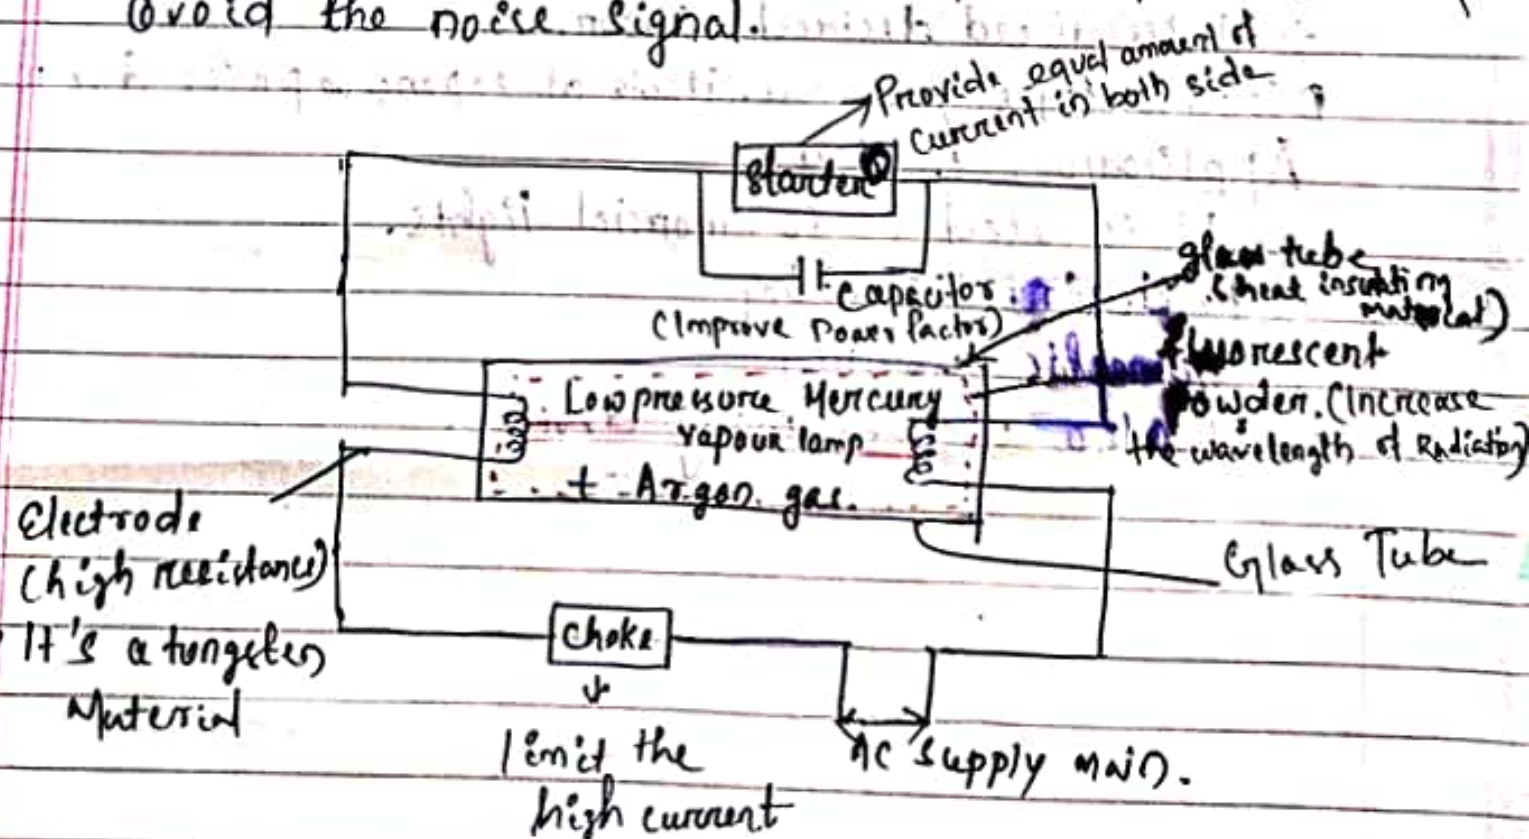 avoid the noise signal.
Provide equal amount of
current in both side
Starter
Capacitor
(Improve Power factor)
glass tube
(heat insulting
material)
fluorescent
Powder. (Increase
the wavelength of Radiation)
Low pressure Mercury
vapour lamp
+ Argon gas.
Electrode
(high resistance)
It's a tungsten
Material
Glass Tube
Choke
limit the
high current
AC supply main.